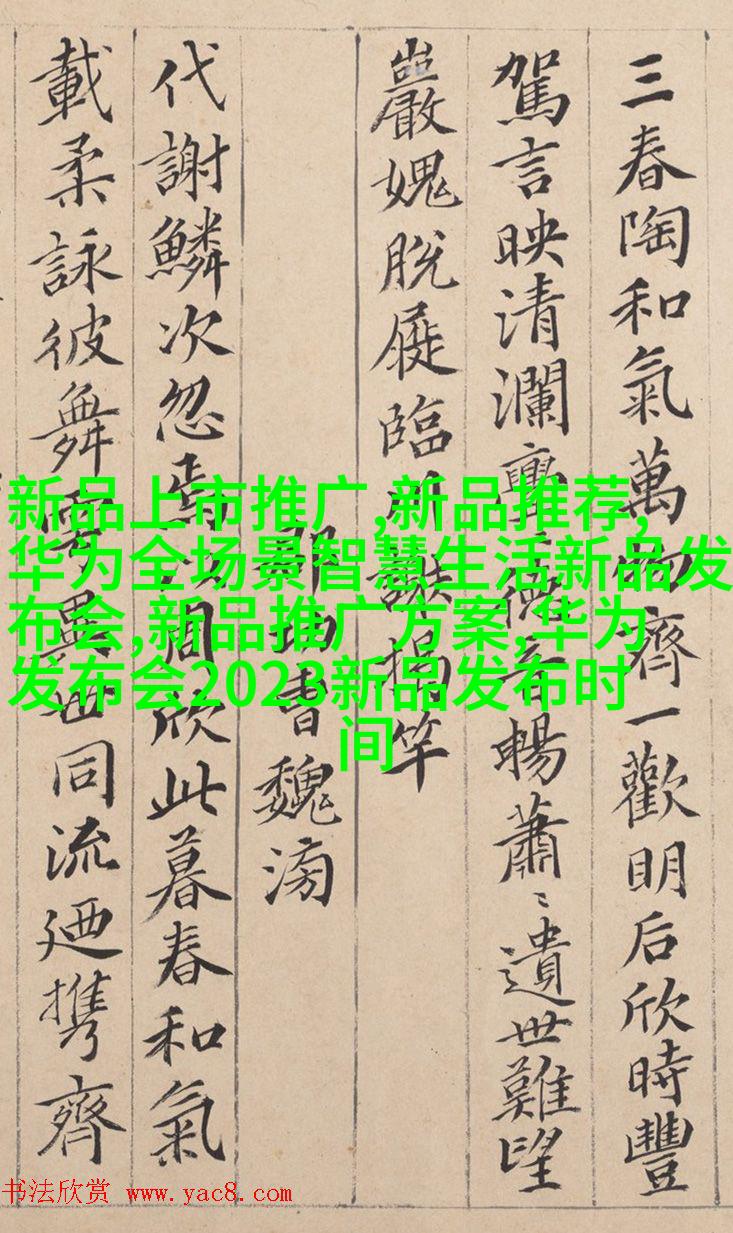 三春陶和氣萬物齊一歡明后欣時豐
駕言映清瀾亹〻德音暢蕭〻遺世難望
巖愧脫屣臨川謝揭竿
郡功曹魏滂
代謝鱗次忽焉以周欣此暮春和氣
載柔詠彼舞雩異世同流廼携齊
新品上市推广,新品推荐,
华为全场景智慧生活新品发
布会,新品推广方案,华为
发布会2023新品发布时
间
书法欣赏 www.yac8.com